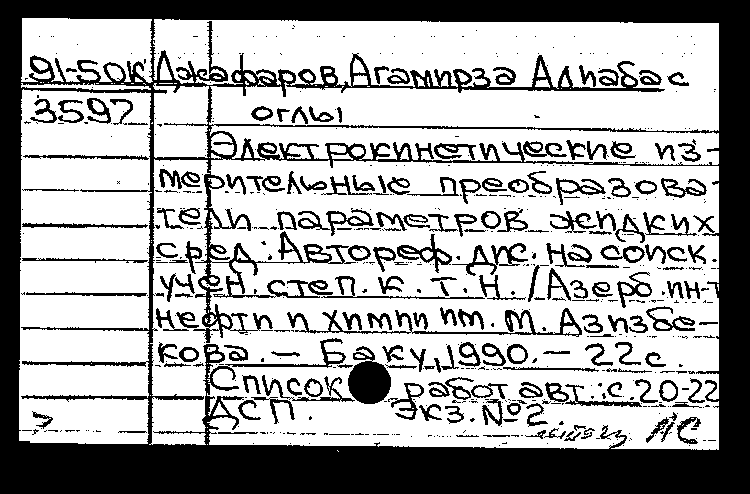 91-50К Джафаров, Агамирза Алиабас
3597 оглы
Электрокинетические из-
мерительные преобразова-
тели параметров жидких
сред : Автореф. дис. на соиск.
учен. степ. к. т. н. / Азерб. ин-т
нефти и химии им. М. Азизбе-
кова. — Баку, 1990. — 22 с.
Список работ авт.: с. 20-22
ДСП. Экз. №2
АС